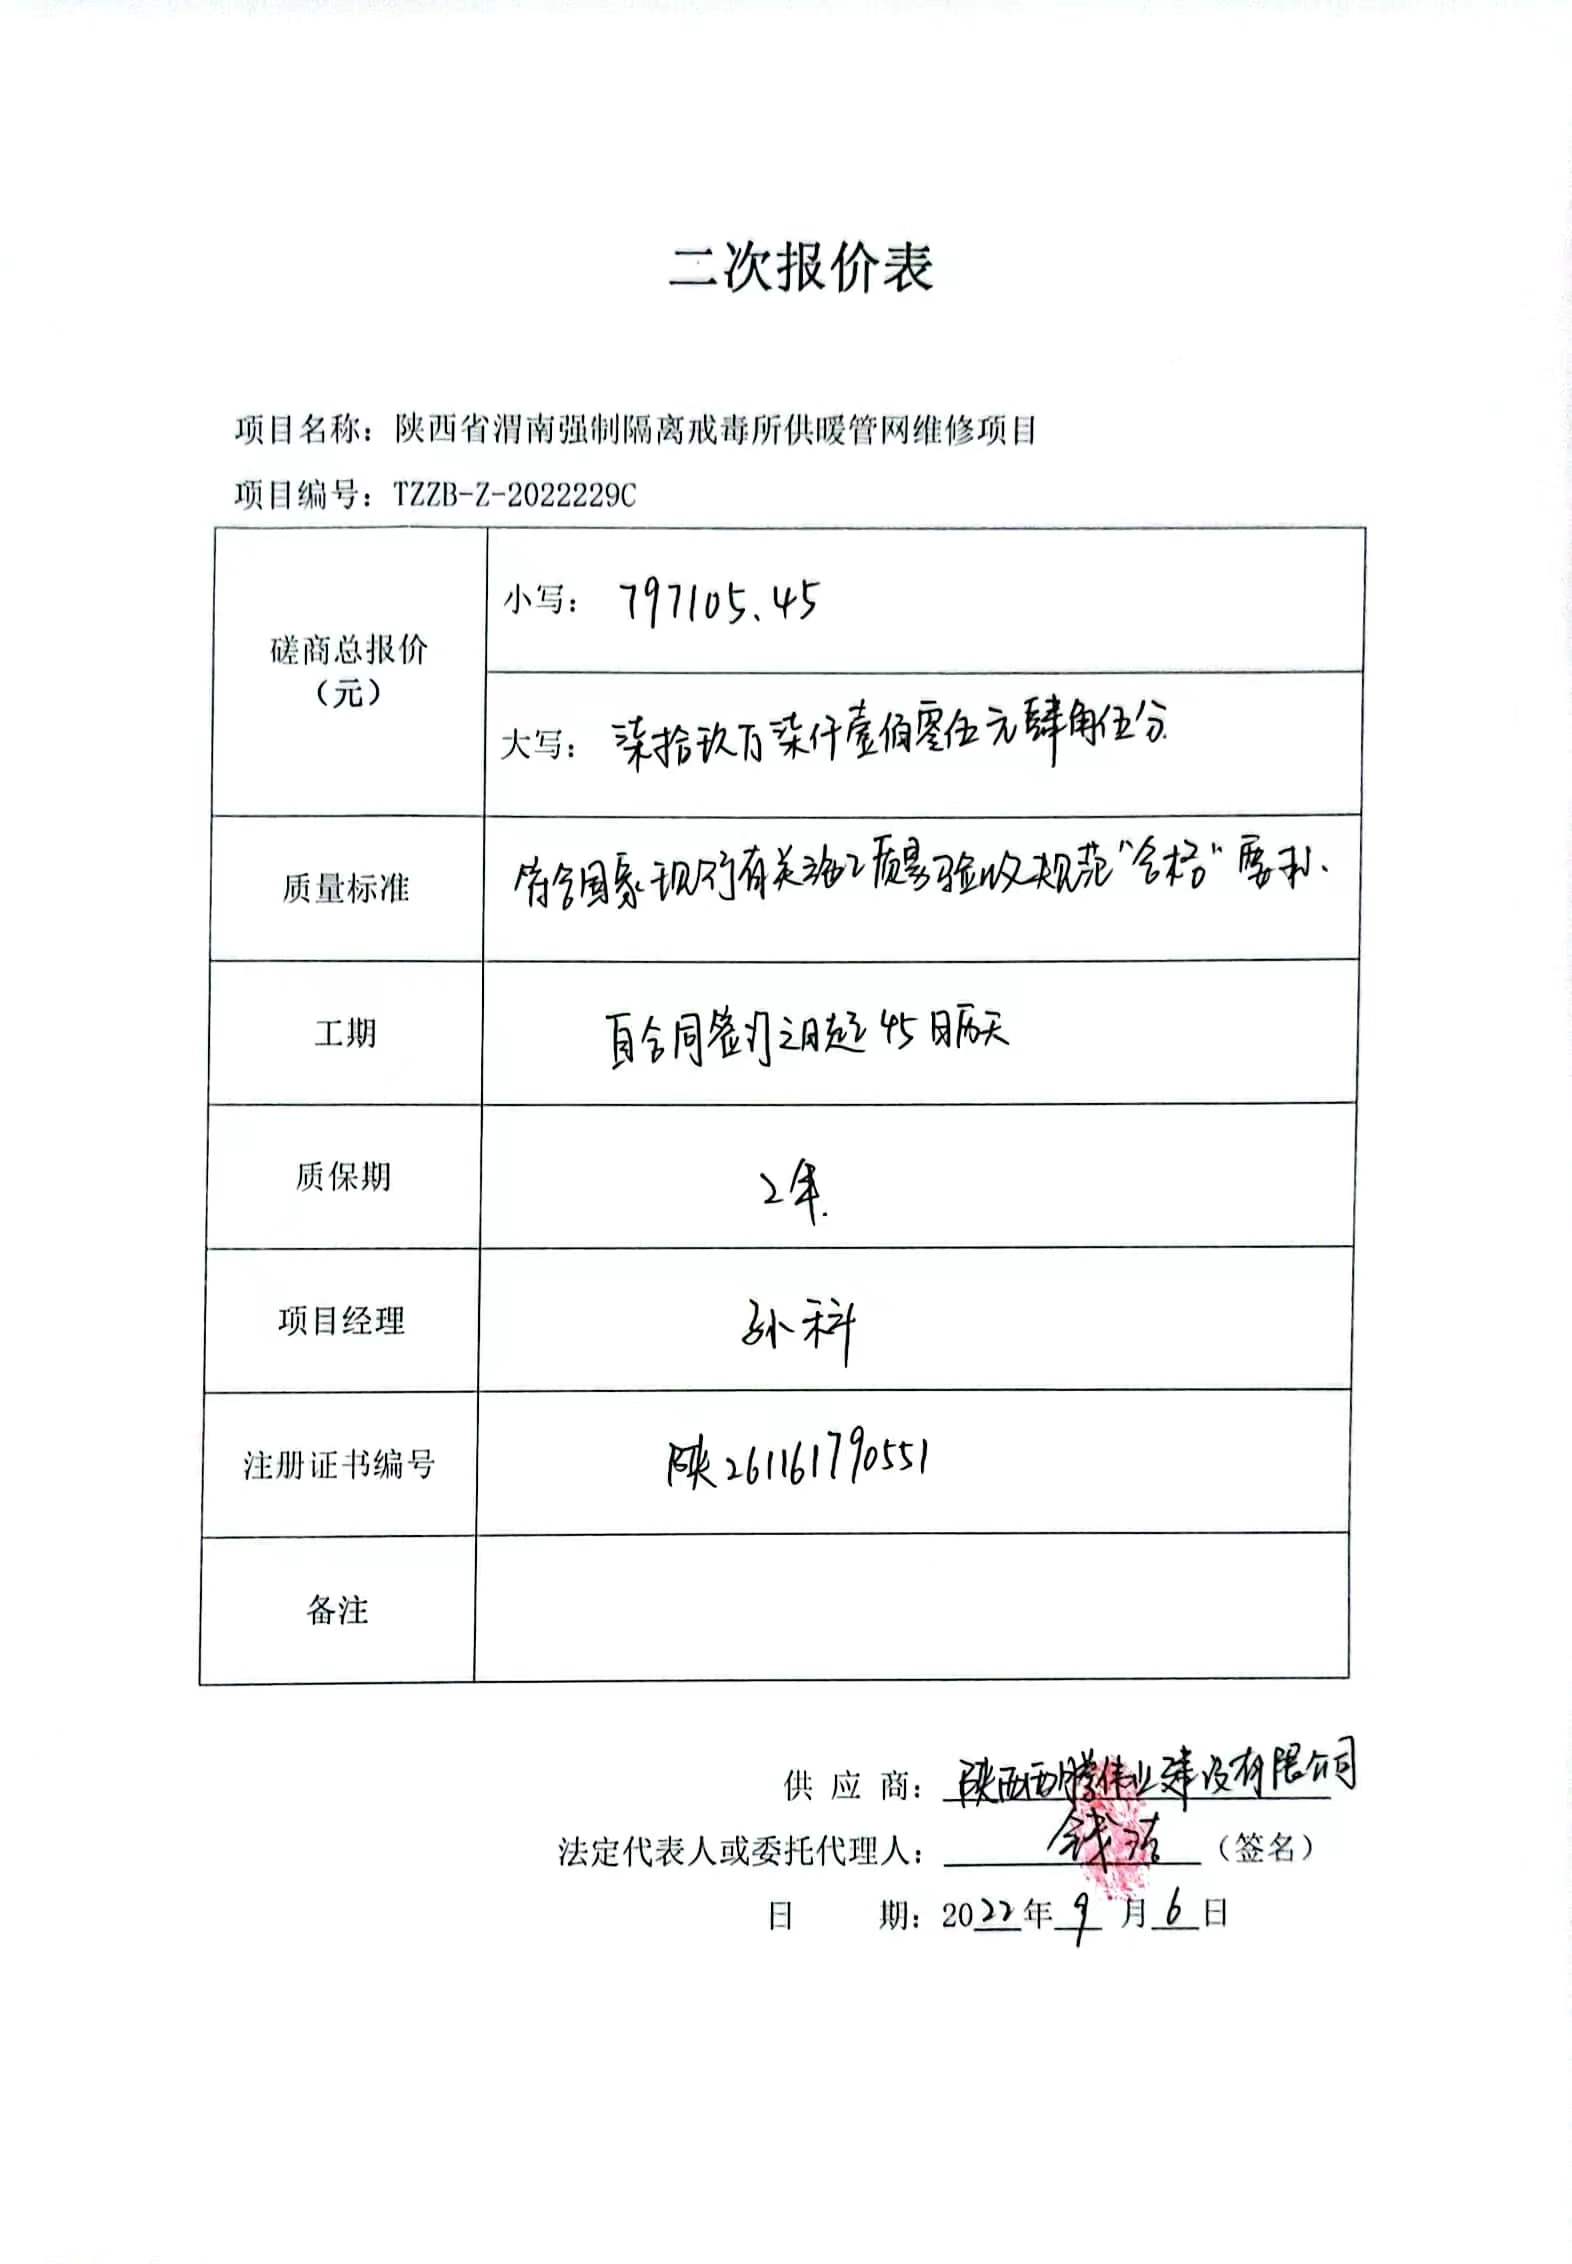 二次报价表
项目名称：陕西省渭南强制隔离戒毒所供暖管网维修项目
项目编号：TZZB-Z-2022229C
磋商总报价
（元）
小写：797105.45
大写：柒拾玖万柒仟壹佰零伍元肆角伍分
质量标准
符合国家现行有关施工质量验收规范“合格”要求.
工期
自合同签订之日起45日历天
质保期
2年.
项目经理
孙科
注册证书编号
陕261161790551
备注
供应商：陕西西腾伟业建设有限公司
法定代表人或委托代理人：钱洁（签名）
日期：2022年9月6日